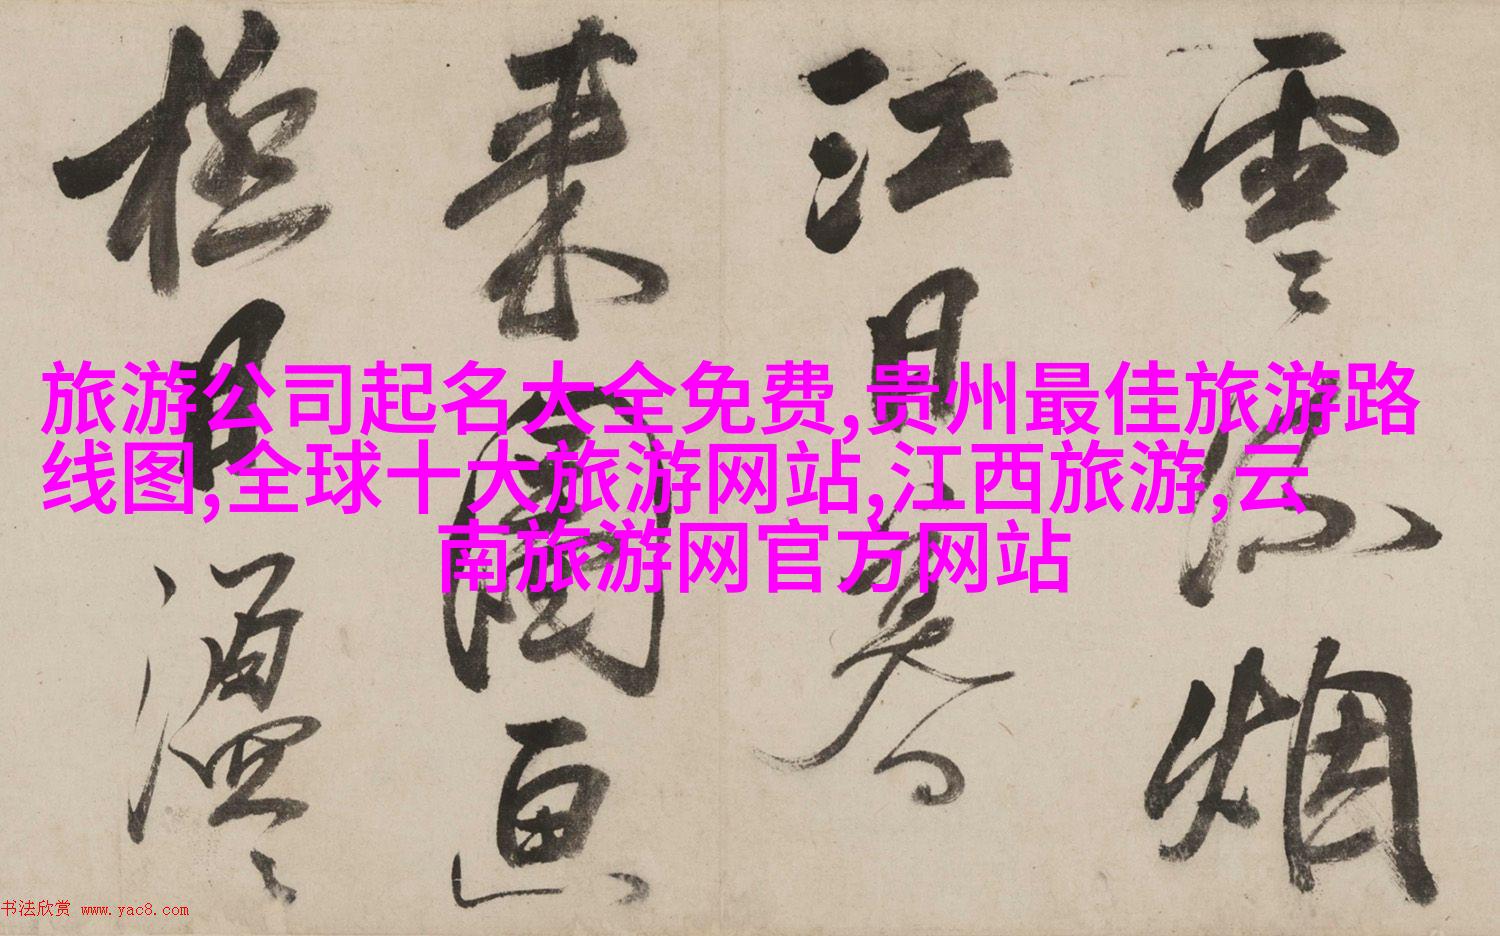 旅游公司起名大全免费,贵州最佳旅游路
线图,全球十大旅游网站,江西旅游,云
南旅游网官方网站
雲〻烟
江
来圖画
極目
书法欣赏 www.yac8.com